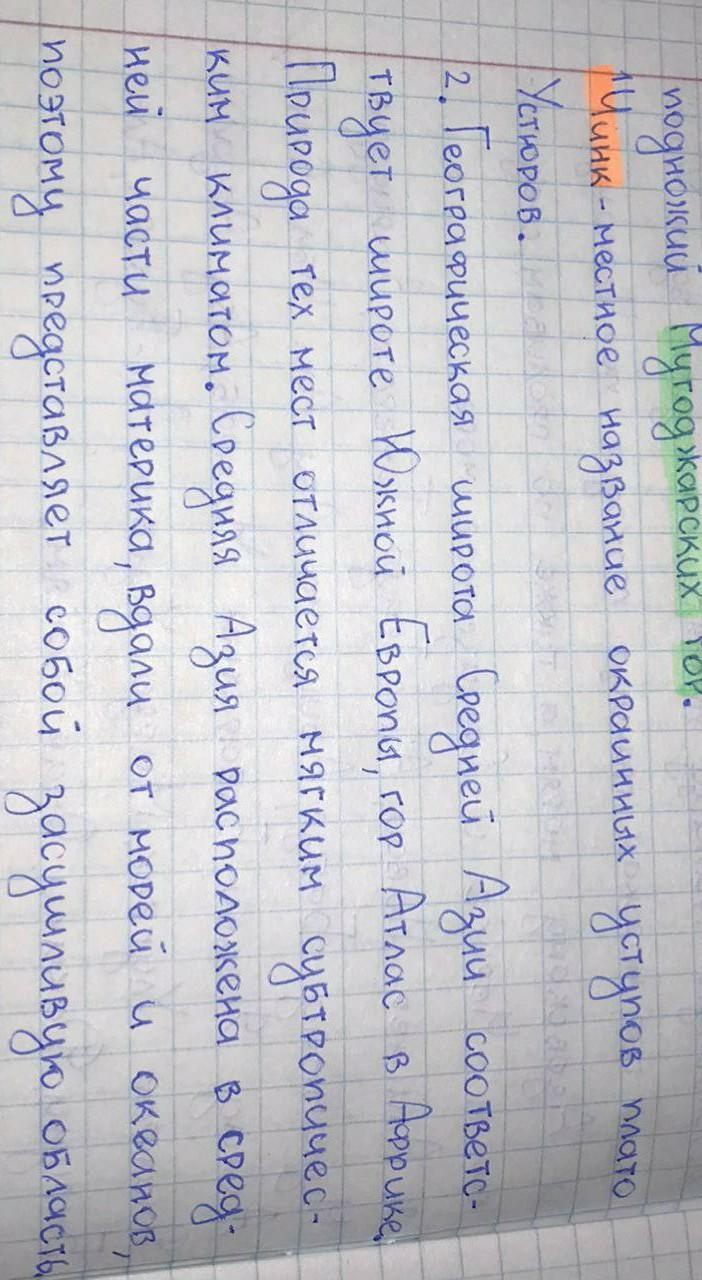 подножий Мугоджарских гор.
Чинк - местное название окраинных уступов плато
Устюров.
2. Географическая широта Средней Азии соответс-
твует широте Южной Европы, гор Атлас в Африке.
Природа тех мест отличается мягким субтропичес-
ким климатом. Средняя Азия расположена в сред-
ней части материка, вдали от морей и океанов,
поэтому представляет собой засушливую область